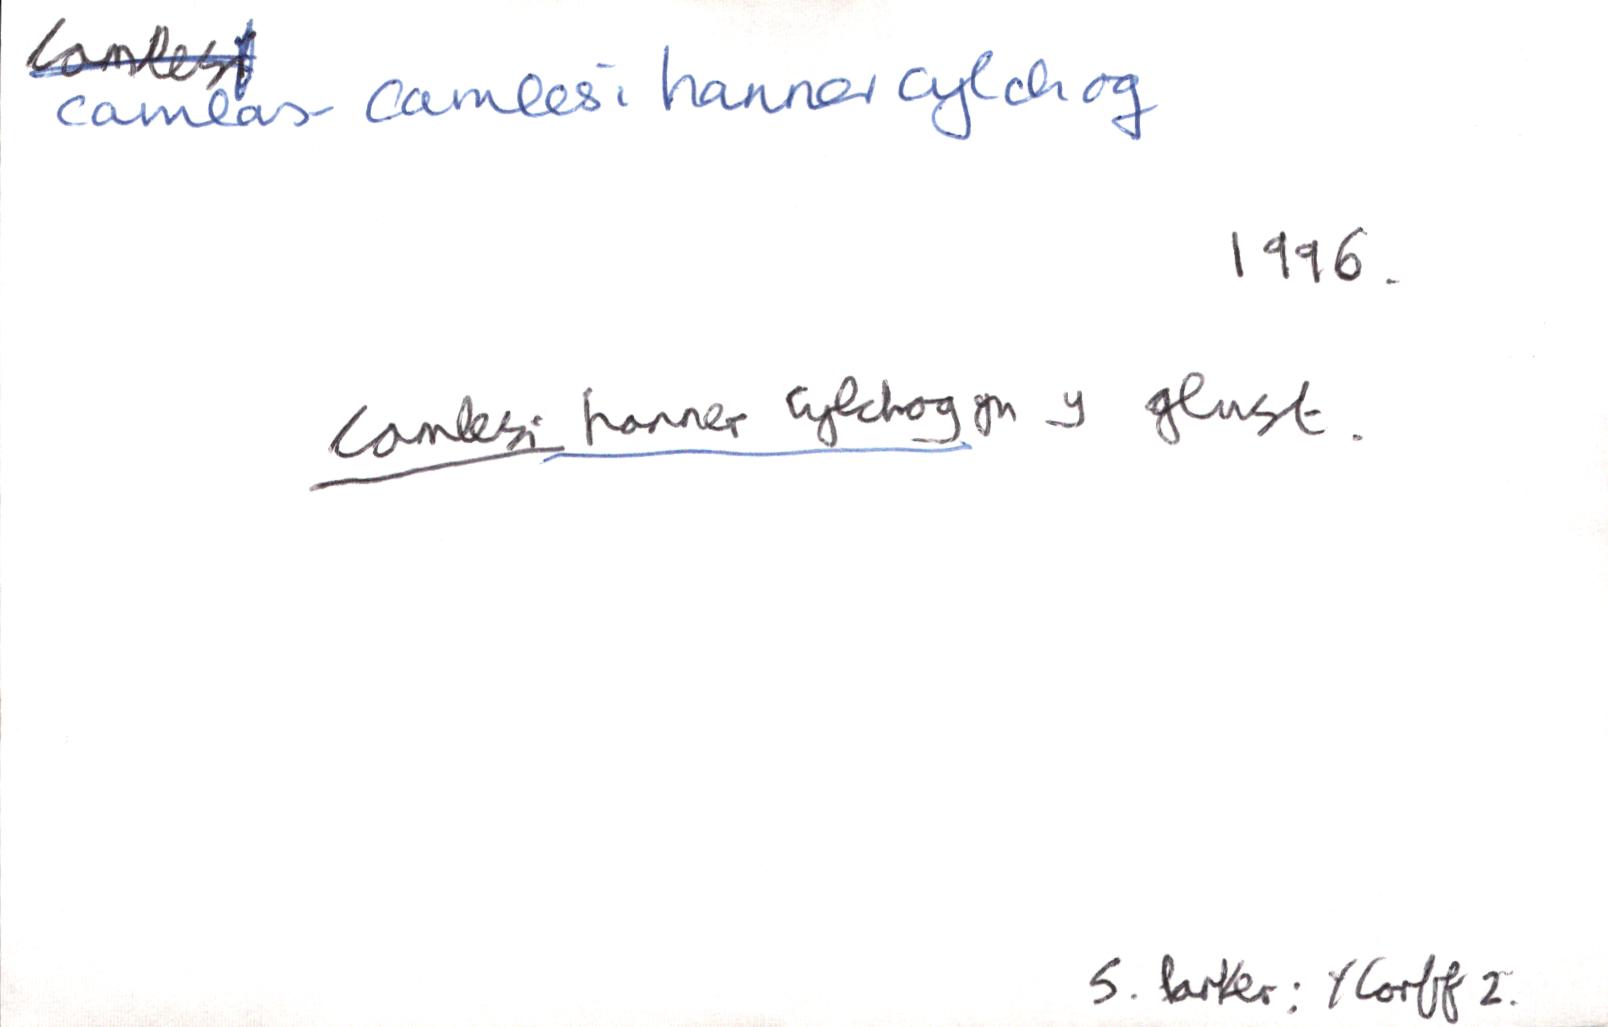 camlesi
camlas camlesi hanner cylchog
1996.
camlesi hanner cylchog yn y glust.
S. Parker; Y Corff 2.